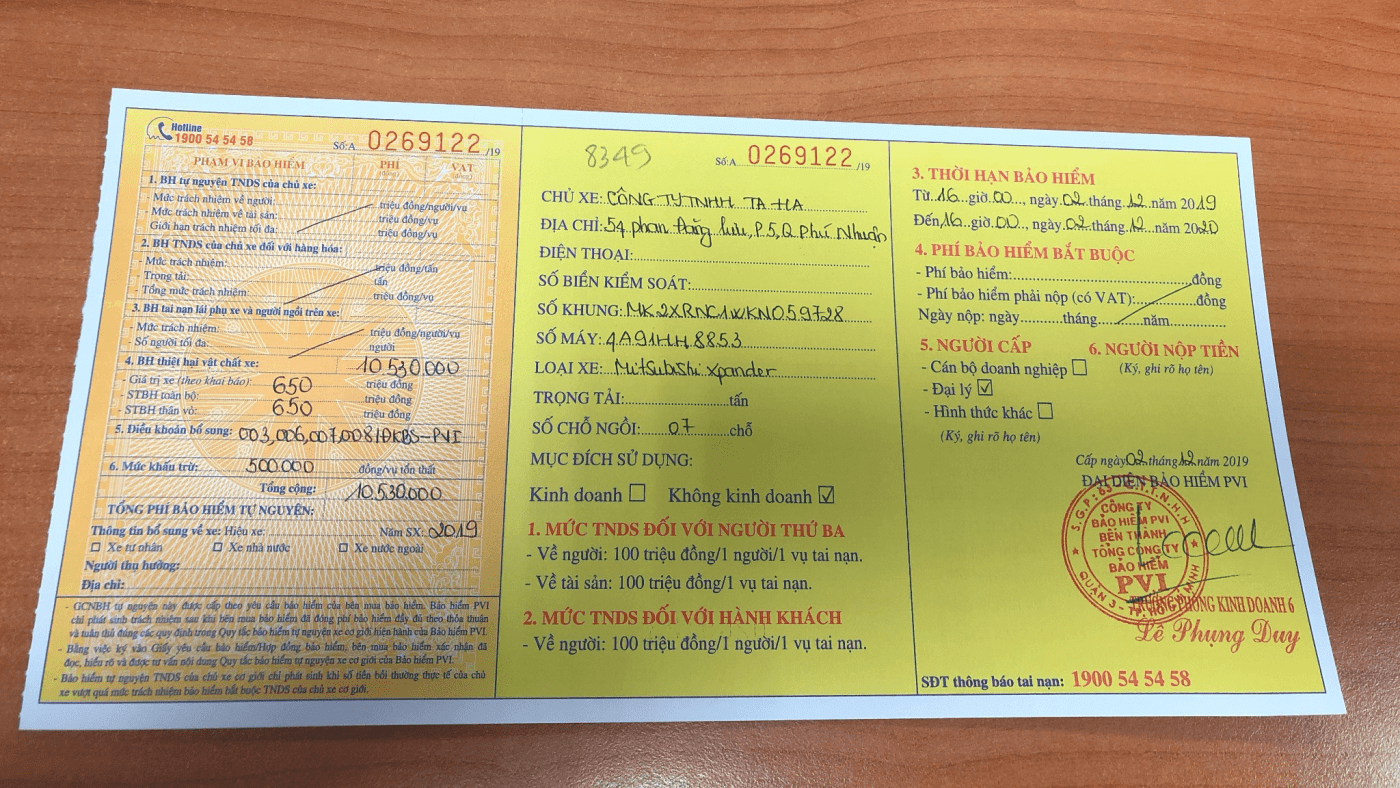 Hotline
1900 54 54 58
Số:A 0269122 /19
PHẠM VI BẢO HIỂM PHÍ (đồng) VAT (đồng)
1. BH tự nguyện TNDS của chủ xe:
- Mức trách nhiệm về người: triệu đồng/người/vụ
- Mức trách nhiệm về tài sản: triệu đồng/vụ
- Giới hạn trách nhiệm tối đa: triệu đồng/vụ
2. BH TNDS của chủ xe đối với hàng hóa:
- Mức trách nhiệm: triệu đồng/tấn
- Trọng tải: tấn
- Tổng mức trách nhiệm: triệu đồng/vụ
3. BH tai nạn lái phụ xe và người ngồi trên xe:
- Mức trách nhiệm: triệu đồng/người/vụ
- Số người tối đa: người
4. BH thiệt hại vật chất xe: 10.530.000
- Giá trị xe (theo khai báo): 650 triệu đồng
- STBH toàn bộ: triệu đồng
- STBH thân vỏ: 650 triệu đồng
5. Điều khoản bổ sung: 003,006,007,008/ĐKBS-PVI
6. Mức khấu trừ: 500.000 đồng/vụ tổn thất
Tổng cộng: 10.530.000
TỔNG PHÍ BẢO HIỂM TỰ NGUYỆN:
Thông tin bổ sung về xe: Hiệu xe: Năm SX: 2019
Xe tư nhân Xe nhà nước Xe nước ngoài
Người thụ hưởng:
Địa chỉ:
- GCNBH tự nguyện này được cấp theo yêu cầu bảo hiểm của bên mua bảo hiểm. Bảo hiểm PVI
chỉ phát sinh trách nhiệm sau khi bên mua bảo hiểm đã đóng phí bảo hiểm đầy đủ theo thỏa thuận
và tuân thủ đúng các quy định trong Quy tắc bảo hiểm tự nguyện xe cơ giới hiện hành của Bảo hiểm PVI.
- Bằng việc ký vào Giấy yêu cầu bảo hiểm/Hợp đồng bảo hiểm, bên mua bảo hiểm xác nhận đã
đọc, hiểu rõ và được tư vấn nội dung Quy tắc bảo hiểm tự nguyện xe cơ giới của Bảo hiểm PVI.
- Bảo hiểm tự nguyện TNDS của chủ xe cơ giới chỉ phát sinh khi số tiền bồi thường thực tế của chủ
xe vượt quá mức trách nhiệm bảo hiểm bắt buộc TNDS của chủ xe cơ giới.
8349
Số:A 0269122 /19
CHỦ XE: CÔNG TY TNHH TA HA
ĐỊA CHỈ: 54 phan Đăng Lưu, P.5, Q Phú Nhuận
ĐIỆN THOẠI:
SỐ BIỂN KIỂM SOÁT:
SỐ KHUNG: MK2XRNC1WKN059728
SỐ MÁY: 4A91HH8853
LOẠI XE: Mitsubishi Xpander
TRỌNG TẢI: tấn
SỐ CHỖ NGỒI: 07 chỗ
MỤC ĐÍCH SỬ DỤNG:
Kinh doanh ☐ Không kinh doanh ☑
1. MỨC TNDS ĐỐI VỚI NGƯỜI THỨ BA
- Về người: 100 triệu đồng/1 người/1 vụ tai nạn.
- Về tài sản: 100 triệu đồng/1 vụ tai nạn.
2. MỨC TNDS ĐỐI VỚI HÀNH KHÁCH
- Về người: 100 triệu đồng/1 người/1 vụ tai nạn.
3. THỜI HẠN BẢO HIỂM
Từ 16 giờ 00, ngày 02 tháng 12 năm 2019
Đến 16 giờ 00, ngày 02 tháng 12 năm 2020
4. PHÍ BẢO HIỂM BẮT BUỘC
- Phí bảo hiểm: đồng
- Phí bảo hiểm phải nộp (có VAT): đồng
Ngày nộp: ngày tháng năm
5. NGƯỜI CẤP 6. NGƯỜI NỘP TIỀN
- Cán bộ doanh nghiệp ☐ (Ký, ghi rõ họ tên)
- Đại lý ☑
- Hình thức khác ☐
(Ký, ghi rõ họ tên)
Cấp ngày 02 tháng 12 năm 2019
ĐẠI DIỆN BẢO HIỂM PVI
CÔNG TY
BẢO HIỂM PVI
BẾN THÀNH
TỔNG CÔNG TY
BẢO HIỂM
PVI
TRƯỞNG PHÒNG KINH DOANH 6
Lê Phụng Duy
SĐT thông báo tai nạn: 1900 54 54 58